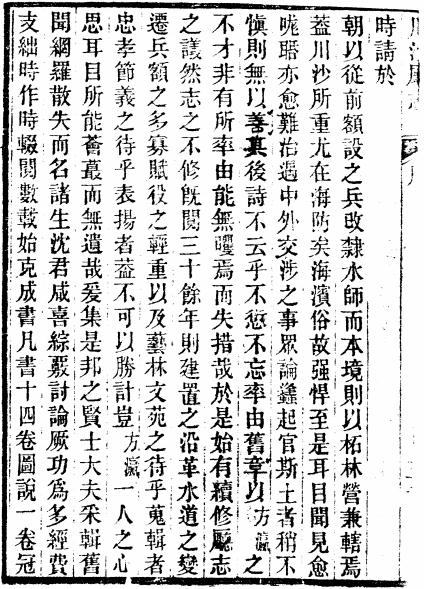 時請於
朝以從前額設之兵改隸水師而本境則以柘林營兼轄焉
蓋川沙所重尤在海防矣海濱俗故强悍至是耳目聞見愈
咙聒亦愈難治遇中外交涉之事眾論鑱起官斯土者稍不
慎則無以善其後詩不云乎不愆不忘率由舊章以方瀛之
不才非有所率由能無嚶焉而失措哉於是始有續修廳志
之議然志之不修旣閱三十餘年則建置之沿革水道之變
遷兵額之多寡賦役之輕重以及藝林文苑之待乎蒐輯者
忠孝節義之待乎表揚者葢不可以勝計豈方瀛一人之心
思耳目所能薈蕞而無遺哉爰集是邦之賢士大夫采輯舊
聞網羅散失而名諸生沈君咸喜綜覈討論厥功爲多經費
支絀時作時輟閱數載始克成書凡書十四卷圖說一卷冠